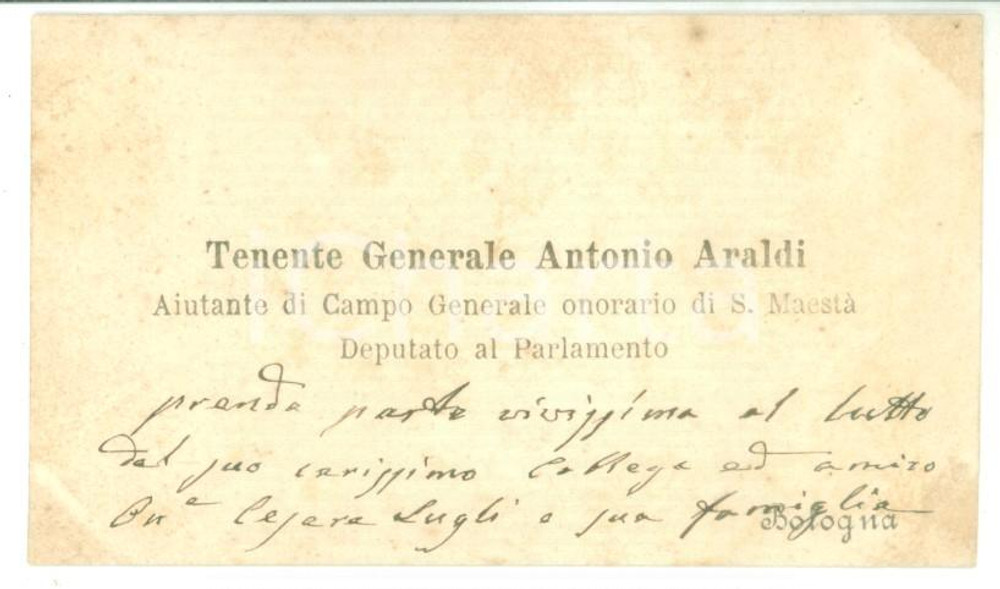 Tenente Generale Antonio Araldi
Aiutante di Campo Generale onorario di S. Maestà
Deputato al Parlamento
prende parte vivissima al lutto
del suo carissimo Collega ed amico
On.e Cesare Lugli e sua famiglia
Bologna